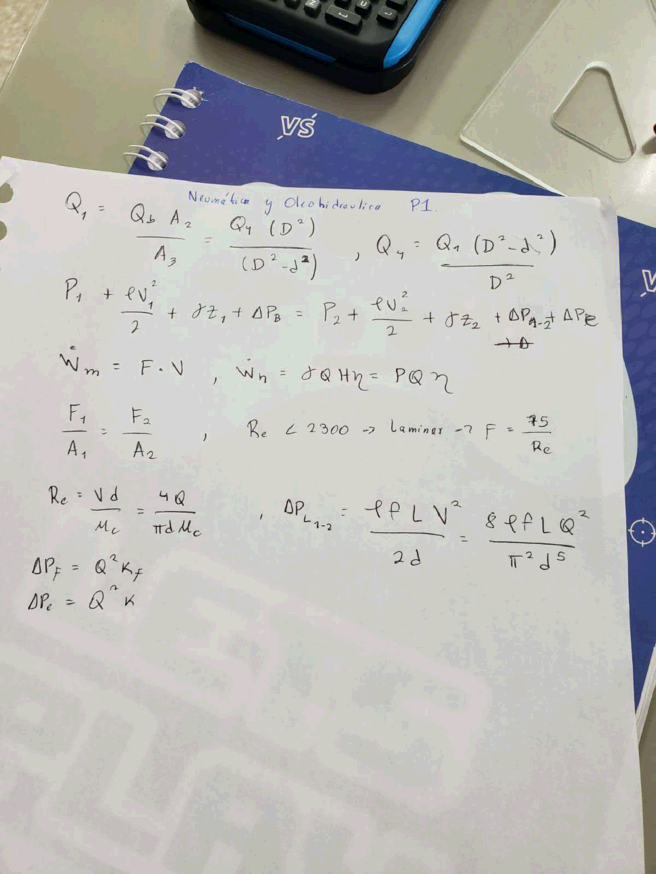 VS
Neumática y Oleohidraulica P1.
Q₁ = Q_b A₂ / A₃ = Q₄ (D²) / (D²-d²) , Q₄ = Q₁ (D²-d²) / D²
P₁ + ρV₁²/2 + γz₁ + ΔP_B = P₂ + ρV₂²/2 + γz₂ + ΔP_{1-2} + ΔPe
Ẇm = F·V , Ẇh = γQHη = PQη
F₁/A₁ = F₂/A₂ , Re < 2300 → Laminar → F = 75/Re
Re = Vd/μc = 4Q/πdμc , ΔP_{L1-2} = ρfLV²/2d = 8ρfLQ²/π²d⁵
ΔP_F = Q²K_f
ΔPe = Q²K